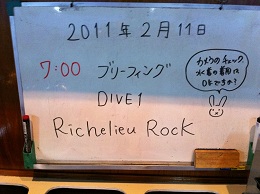 2011年2月11日
7:00 ブリーフィング
DIVE1
Richelieu Rock
カメラのチェック
水着の着用は
OKですか?